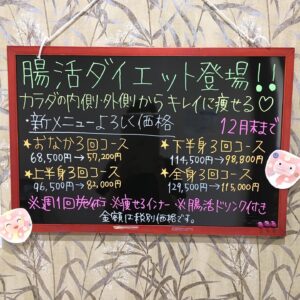 腸活ダイエット登場!!
カラダの内側・外側からキレイに痩せる♡
・新メニューよろしく価格 12月末まで
★おなか3回コース
68,500円→57,200円
★下半身3回コース
114,500円→98,800円
★上半身3回コース
96,500円→82,000円
★全身3回コース
129,500円→115,000円
※週1回施術 ※痩せるインナー ※腸活ドリンク付き
金額は税別価格です。